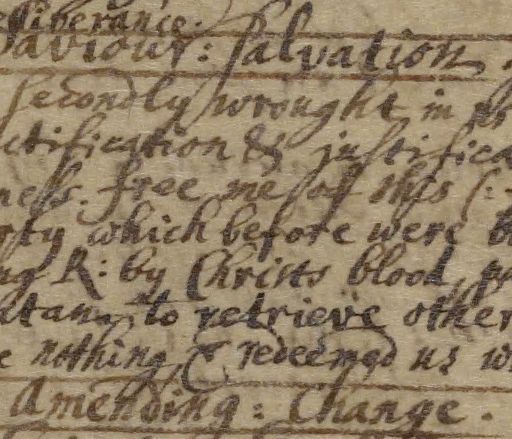 eliberance.
Saviour: Salvation
Secondly wrought in
ctification & justifica
ness. free me of this
rty which before were b
ng R: by Christs blood,
atan, to retrieve other
nothing, & redeemed us w
Amending: Change.